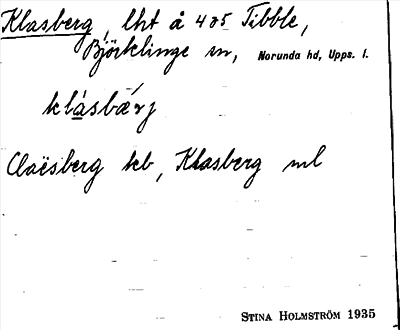 Klasberg, lht å 4 a5 Tibble,
Björklinge sn, Norunda hd, Upps. l.
klásbæ̀rj
Claësberg kb, Klasberg ml
STINA HOLMSTRÖM 1935